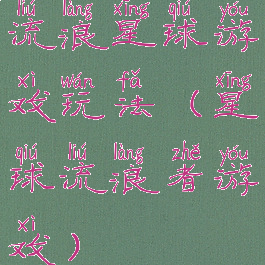 liú làng xīng qiú yóu
流浪星球游
xì wán fǎ xīng
戏玩法（星
qiú liú làng zhě yóu
球流浪者游
xì
戏）